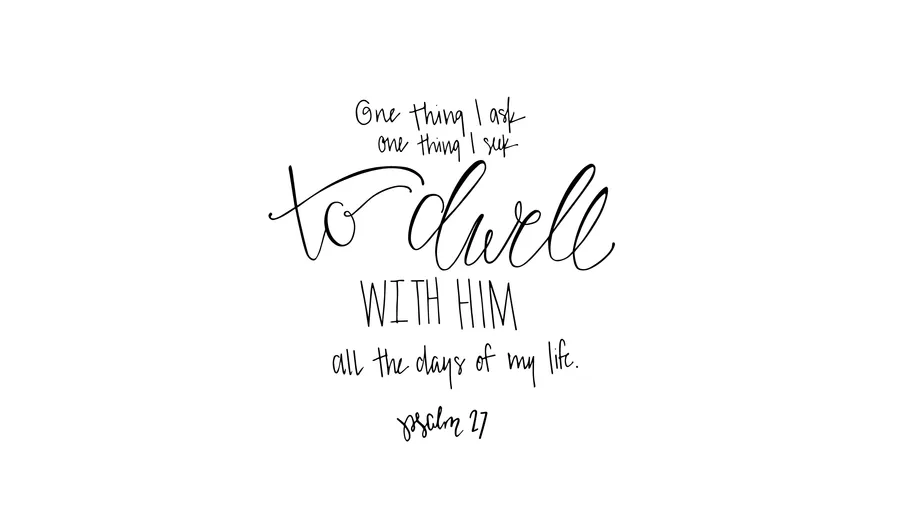 One thing I ask
one thing I seek
to dwell
WITH HIM
all the days of my life.
psalm 27